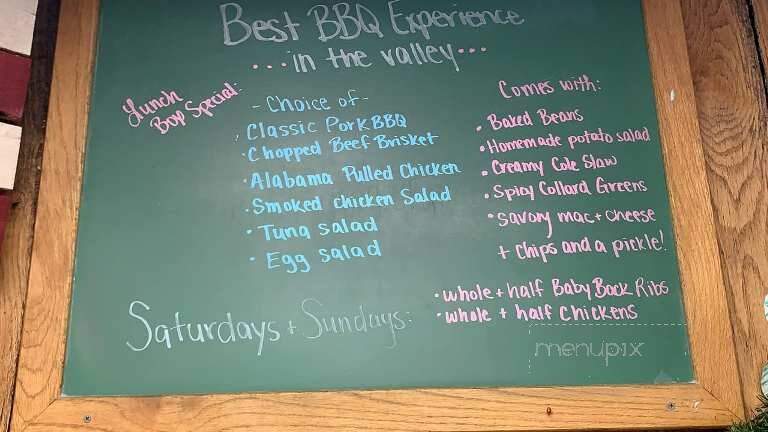 Best BBQ Experience
...in the valley...
Lunch
Box Special:
- Choice of -
· Classic Pork BBQ
· Chopped Beef Brisket
· Alabama Pulled Chicken
· Smoked chicken Salad
· Tuna salad
· Egg salad
Comes with:
· Baked Beans
· Homemade potato salad
· Creamy Cole Slaw
· Spicy Collard Greens
· savory mac + cheese
+ chips and a pickle!
Saturdays + Sundays:
· whole + half Baby Back Ribs
· whole + half Chickens
menupix